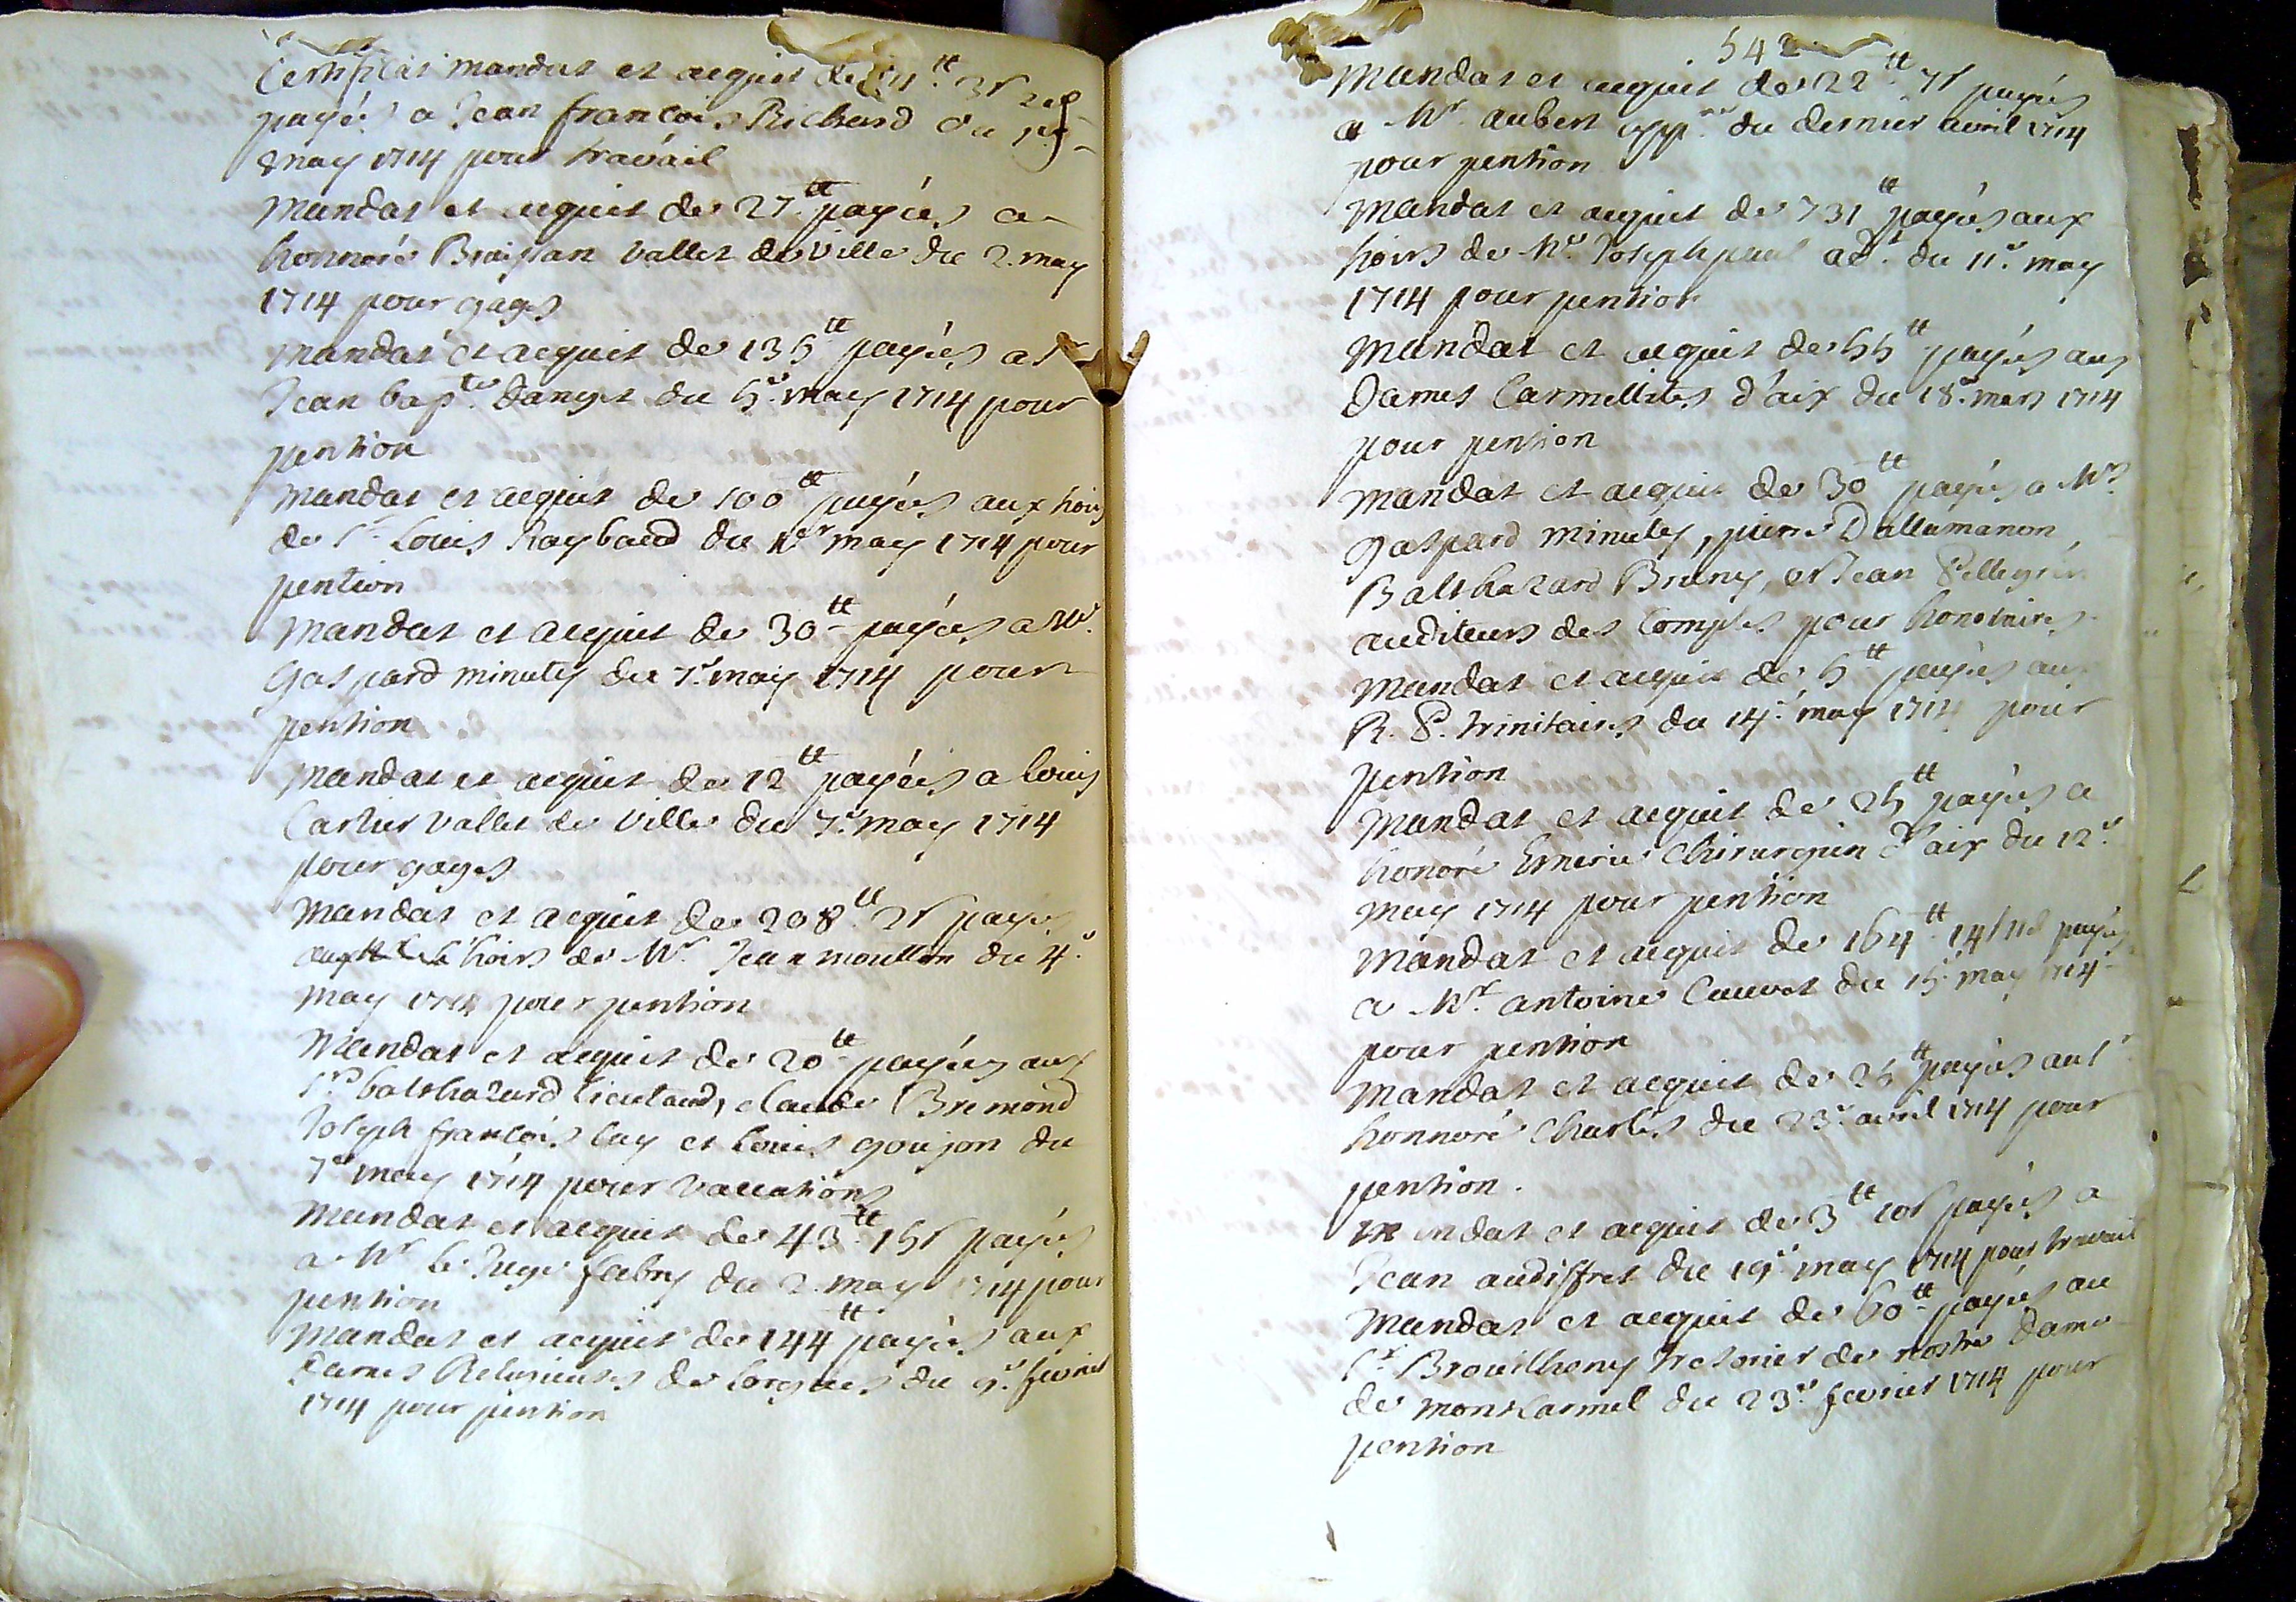 Certificat mandat et acquit de 11₶ 3s 2d
payées a Jean françois Richard du 1er
may 1714 pour travail
mandat et acquit de 27₶ payées a
honnoré Braissan vallet de ville du 2. may
1714 pour gages
mandat et acquit de 135₶ payées a Sr
Jean bapte. danget du 5e. may 1714 pour
pention
mandat et acquit de 100₶ payées aux hoirs
de Sr Louis Raybaud du may 1714 pour
pention
mandat et acquit de 30₶ payées a Mr.
gaspard minuty du 7e. may 1714 pour
pention
mandat et acquit de 12₶ payées a Louis
Cartier vallet de ville du 7e. may 1714
pour gages
mandat et acquit de 208₶ 2s payées
aux hoirs de Mr. Jean moutton du 4e.
may 1714 pour pention
Mandat et acquit de 20₶ payées aux
Srs balthazard lieutaud, claude Bremond
Joseph françois luy et Louis goujon du
7e may 1714 pour vaccations
Mandat et acquit de 43₶ 15s payées
a Mr le Juge fabry du 2. may 1714 pour
pention
mandat et acquit de 144₶ payées aux
dames Religieuses de Lorgues du 9e. fevrier
1714 pour pention
542
Mandat et acquit de 22₶ 7s payées
a Mr. aubert du dernier avril 1714
pour pention
mandat et acquit de 731₶ payées aux
hoirs de Me. Joseph paul adt. du 11e. may
1714 pour pention
mandat et acquit de 55₶ payées aux
Dames Carmellites d'aix du 18e. mars 1714
pour pention
mandat et acquit de 30₶ payées a Mrs
gaspard minuty, pierre Dallamanon
Balthazard Bruny, et Jean Pellegrin
auditeurs des Comptes pour honoraires
mandat et acquit de 5₶ payées aux
R. P. trinitaires du 14e. may 1714 pour
pention
mandat et acquit de 25₶ payées a
honoré Emeric Chirurgien d'aix du 12e.
may 1714 pour pention
mandat et acquit de 164₶ 14s 11d payées
a Mr. antoine Cauvet du 15e. may 1714
pour pention
mandat et acquit de 25₶ payées au Sr
honnoré Charles du 23e. avril 1714 pour
pention.
mandat et acquit de 3₶ 10s payées a
Jean audiffret du 19e. may 1714 pour travail
Mandat et acquit de 60₶ payées au
Sr. Brouilhony tresorier de nostre dame
de mont Carmel du 23e. fevrier 1714 pour
pention